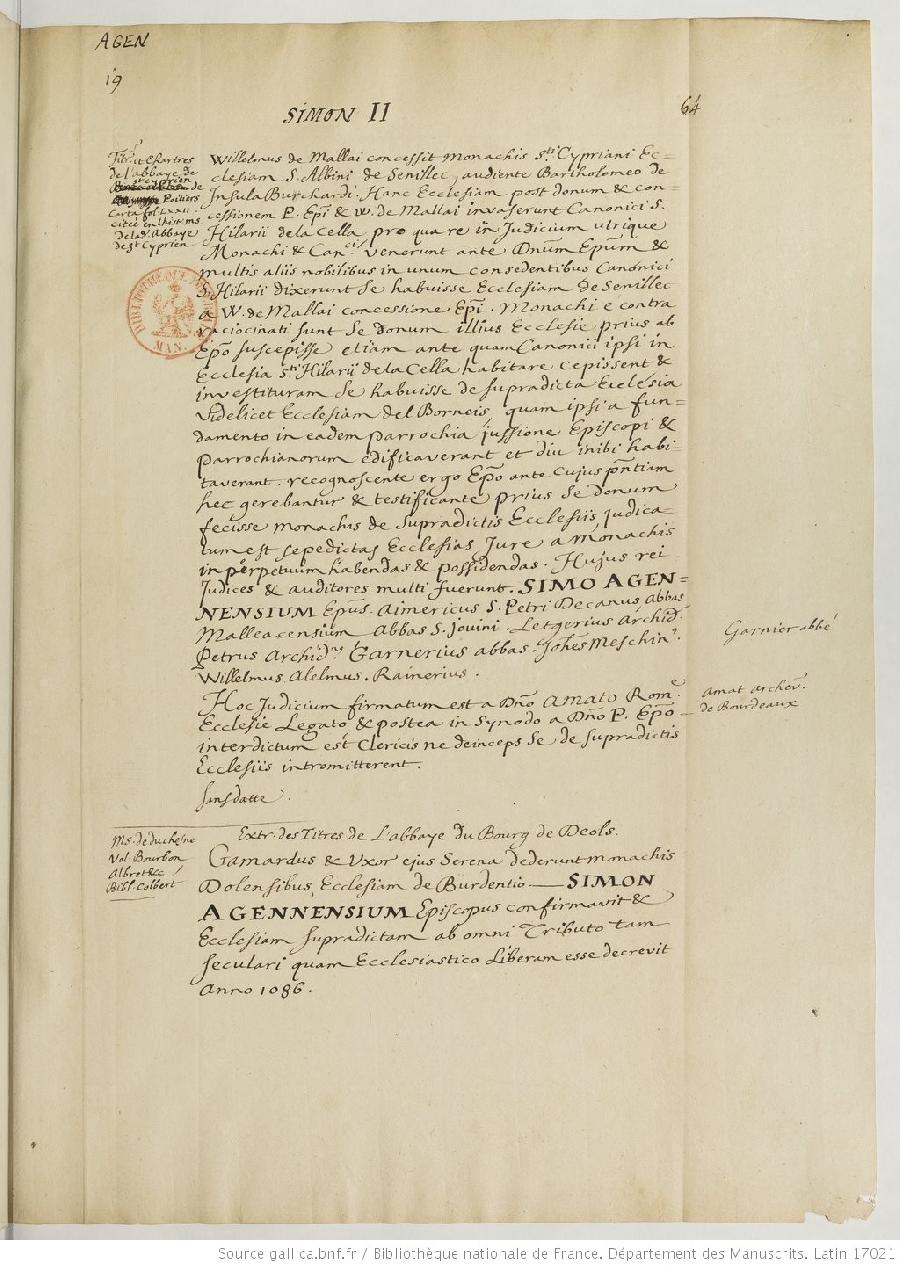 AGEN
19
64
SIMON II
Titr. et Chartres
de l'abbaye de
st Cyprien
de
Poitiers
Carta fol LXXII.
citée en l'hist ms
de lad. Abbaye
de st Cyprien
Willelmus de Mallai concessit monachis sti Cypriani Ec=
clesiam S. Albini de Senillec, audiente Bartholomeo de
Insula Burchardi. Hanc Ecclesiam post donum & con=
cessionem P. Epi & W. de Mallai invaserunt Canonici S.
Hilarii de la Cella pro qua re in Judicium utrique
Monachi & Canci venerunt ante Dnum Epum &
multis aliis nobilibus in unum consedentibus Canonici
S. Hilarii dixerunt se habuisse Ecclesiam de Senillec
a W. de Mallai concessione Epi. Monachi e contra
raciocinati sunt se donum illius Ecclesie prius ab
Epo suscepisse etiam ante quam Canonici ipsi in
Ecclesia sti Hilarii de la Cella habitare cepissent &
investituram se habuisse de supradicta Ecclesia
videlicet Ecclesiam del Borneis, quam ipsi a fun-
damento in eadem parrochia jussione Episcopi &
parrochianorum edificaverant et diu inibi habi-
taverant. recognoscente ergo Epo ante cujus pntiam
hec gerebantur & testificante prius se donum
fecisse monachis de supradictis Ecclesiis judica-
tum est sepedictas Ecclesias Jure a Monachis
in perpetuum habendas & possidendas. Hujus rei
Judices & auditores multi fuerunt. SIMO AGEN=
NENSIUM Epus. Aimericus S. Petri Decanus, Abbas
Malleacensium Abbas S. Jovini. Letgerius Archid.
Petrus Archidnus Garnerius abbas. Johes Meschin.
Willelmus. Alelmus. Rainerius.
Garnier abbé
Hoc Judicium firmatum est a Dno Amato Rome
Ecclesie Legato & postea in Synodo a Dno P. Epo
interdictum est Clericis ne deinceps se de supradictis
Ecclesiis intromitterent.
Amat Archev.
de Bourdeaux
sans datte.
Ms. de duchesne
Vol. Bourbon
Albret &c
Bibl. Colbert
Extr. des Titres de L'abbaye du Bourg de Deols.
Gamardus & Uxor ejus Serena dederunt monachis
Dolensibus Ecclesiam de Burdentio — SIMON
AGENNENSIUM Episcopus confirmavit &
Ecclesiam supradictam ab omni Tributo tam
seculari quam Ecclesiastico Liberam esse decrevit
Anno 1086.
BIBLIOTHEQUE
MAN.
Source gallica.bnf.fr / Bibliothèque nationale de France. Département des Manuscrits. Latin 17021